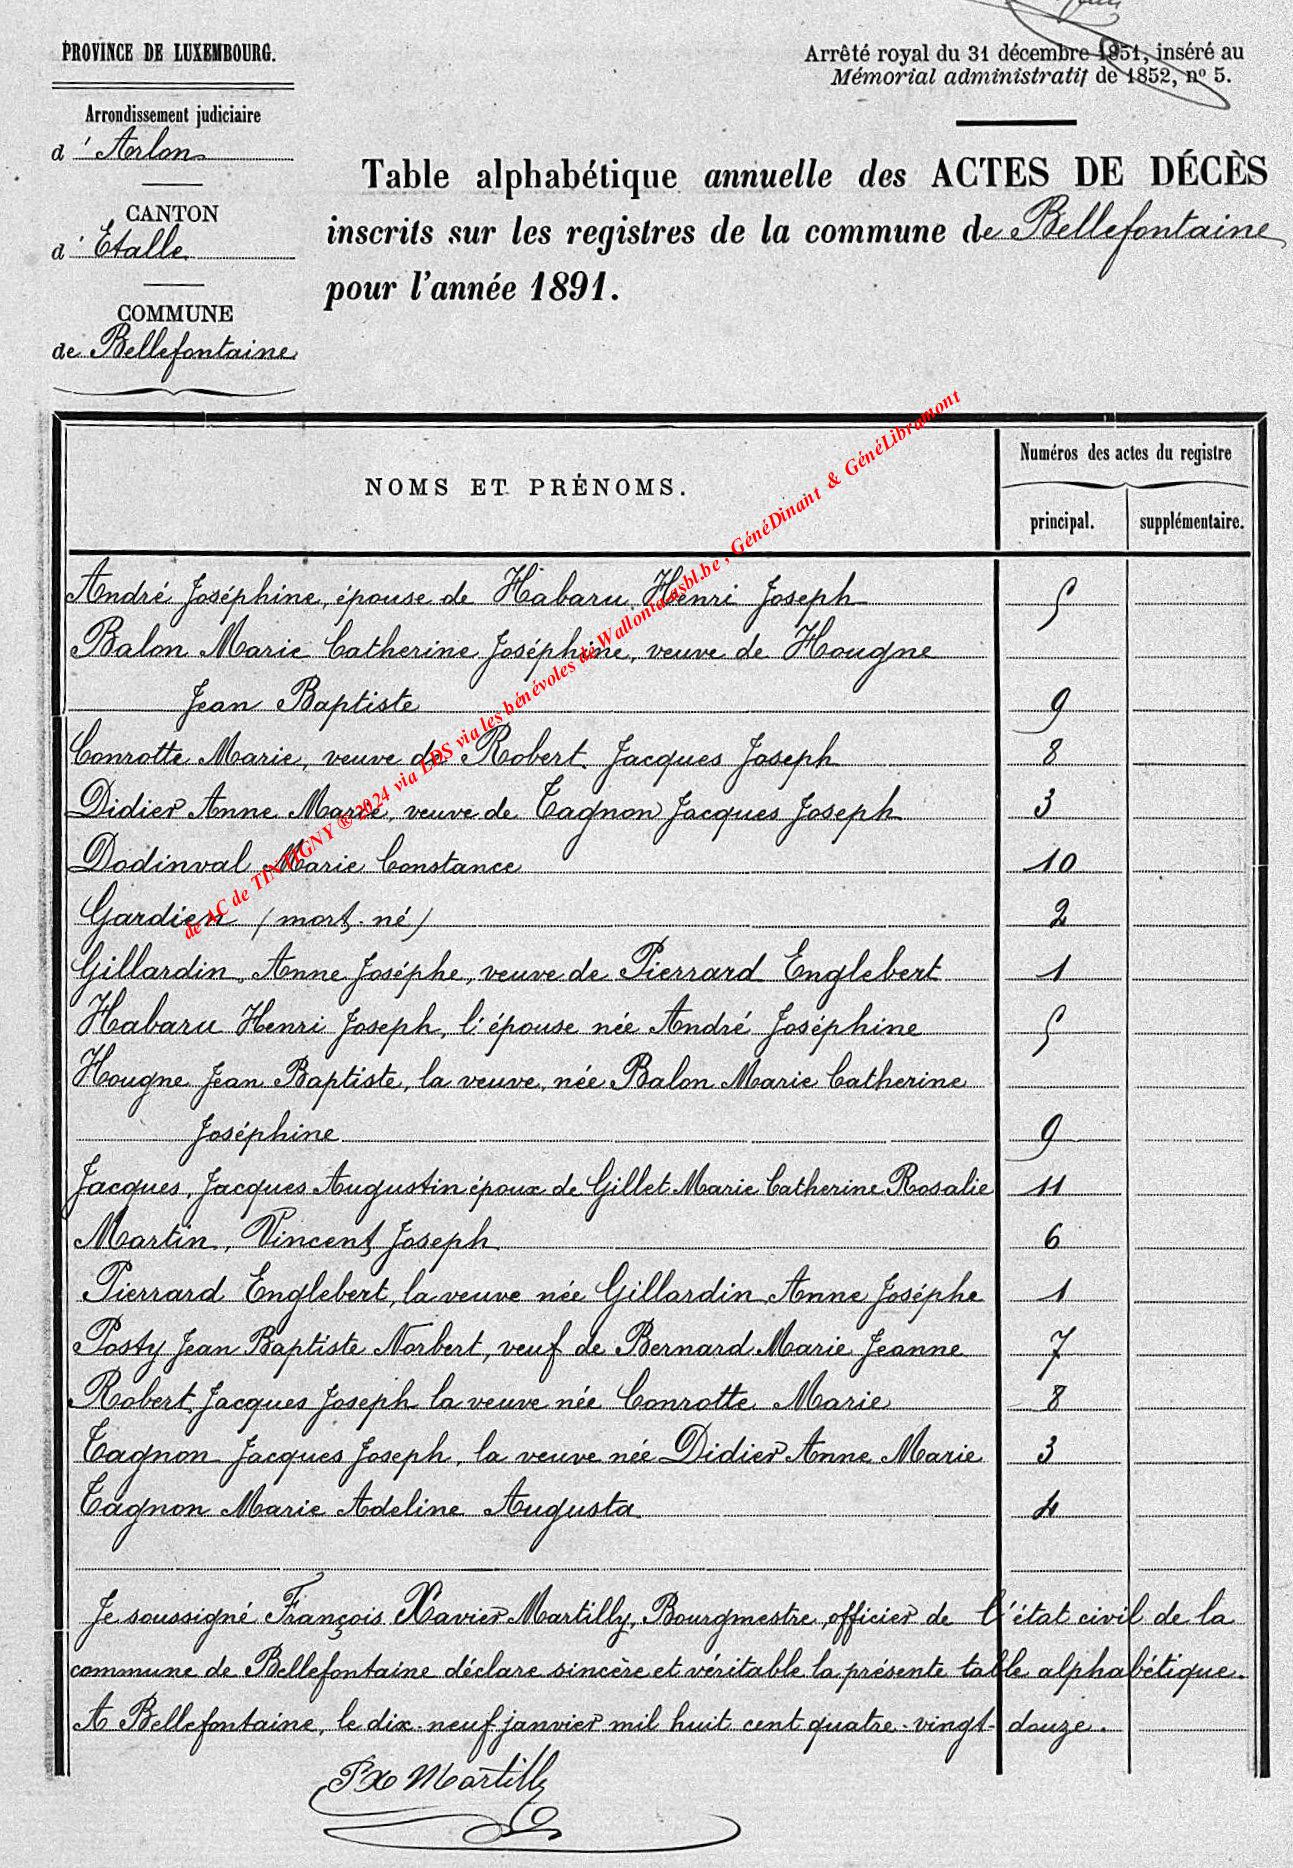 PROVINCE DE LUXEMBOURG.
Arrêté royal du 31 décembre 1851, inséré au
Mémorial administratif de 1852, nº 5.
Arrondissement judiciaire
d'Arlon
CANTON
d'Etalle
COMMUNE
de Bellefontaine
Table alphabétique annuelle des ACTES DE DÉCÈS
inscrits sur les registres de la commune de Bellefontaine
pour l'année 1891.
NOMS ET PRÉNOMS.
Numéros des actes du registre
principal. supplémentaire.
de AC de TINTIGNY ® 2024 via LDS via les bénévoles de Wallonta-asbl.be , GénéDinant & GénéLibramont
André Joséphine, épouse de Habaru Henri Joseph 5
Balon Marie Catherine Joséphine, veuve de Hougne
Jean Baptiste 9
Conrotte Marie, veuve de Robert Jacques Joseph 8
Didier Anne Marie, veuve de Tagnon Jacques Joseph 3
Dodinval Marie Constance 10
Gardien (mort-né) 2
Gillardin, Anne Josèphe, veuve de Pierrard Englebert 1
Habaru Henri Joseph, l'épouse née André Joséphine 5
Hougne Jean Baptiste, la veuve, née Balon Marie Catherine
Joséphine 9
Jacques, Jacques Augustin époux de Gillet Marie Catherine Rosalie 11
Martin, Vincent Joseph 6
Pierrard Englebert, la veuve née Gillardin Anne Josèphe 1
Posty Jean Baptiste Norbert, veuf de Bernard Marie Jeanne 7
Robert Jacques Joseph la veuve née Conrotte Marie 8
Tagnon Jacques Joseph, la veuve née Didier Anne Marie 3
Tagnon Marie Adeline Augusta 4
Je soussigné François Xavier Martilly, Bourgmestre, officier de l'état civil de la
commune de Bellefontaine déclare sincère et véritable la présente table alphabétique.
A Bellefontaine, le dix-neuf janvier mil huit cent quatre-vingt-douze.
Fx Martilly